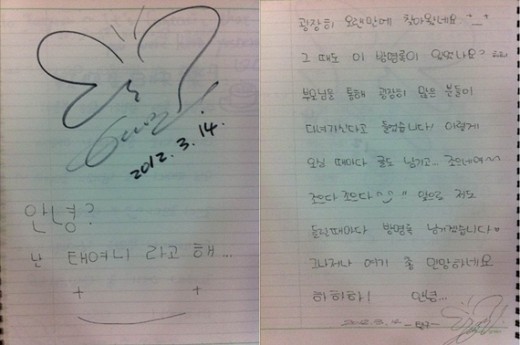 2012. 3. 14.
안녕?
난 태여니 라고 해...
굉장히 오랜만에 찾아왔네요 ^_^
그 때도 이 방명록이 있었나요?
부모님을 통해 굉장히 많은 분들이
다녀가신다고 들었습니다! 이렇게
오실 때마다 글도 남기고... 조으네여~~
조으다 조으다 앞으로 저도
들릴때마다 방명록 남기겠습니다
그나저나 여기 좀 민망하네요
하하하!